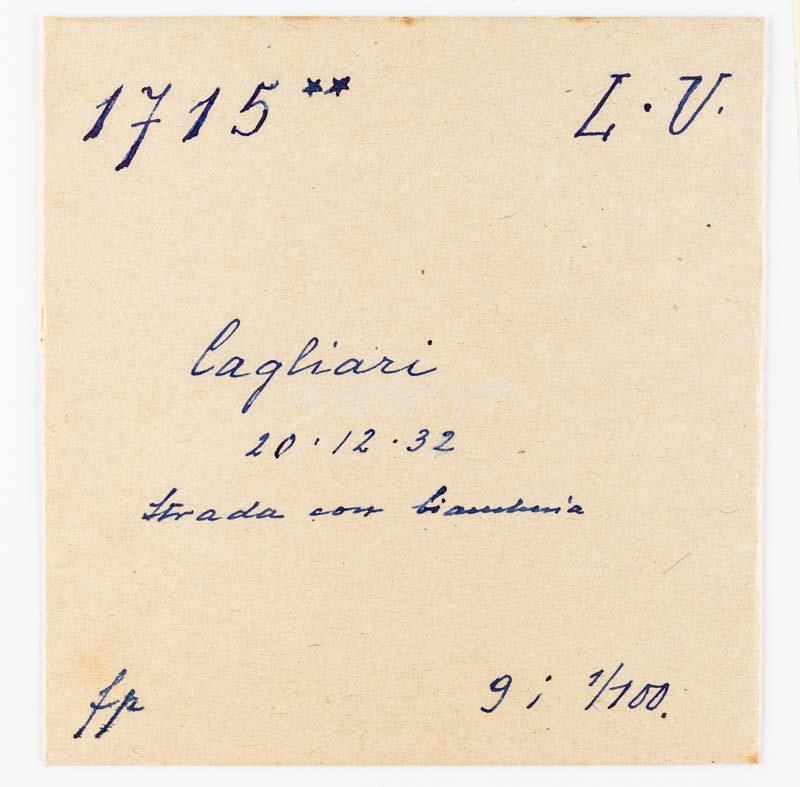 1715** L.V.
Cagliari
20.12.32
Strada con biancheria
fp 9 i 1/100.